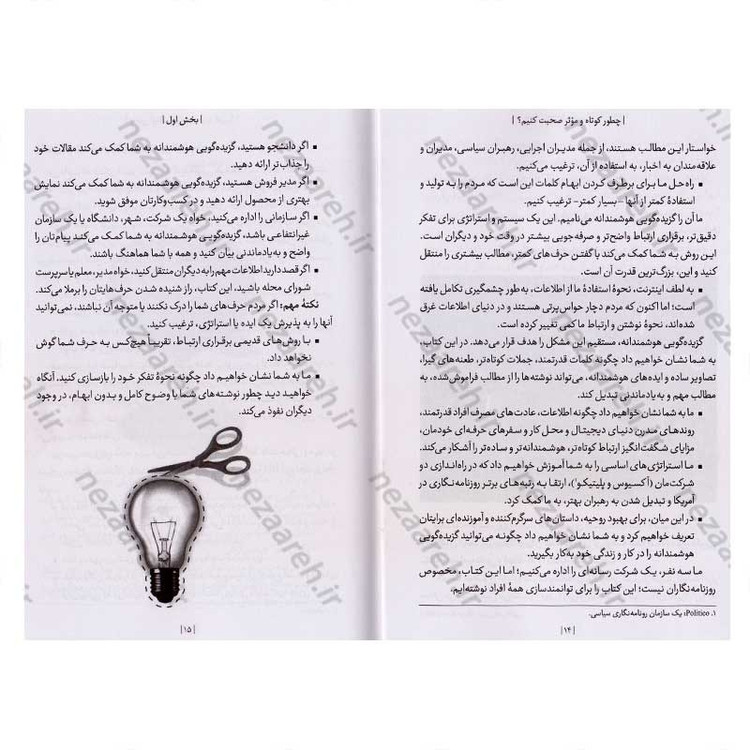 | چطور کوتاه و مؤثر صحبت کنیم؟ |
خواستار این مطالب هستند، از جمله مدیران اجرایی، رهبران سیاسی، مدیران و
علاقه‌مندان به اخبار، به استفاده از آن، ترغیب می‌کنیم.
▪ راه حل ما برای برطرف کردن ابهام کلمات این است که مردم را به تولید و
استفادهٔ کمتر از آنها –بسیار کمتر– ترغیب کنیم.
ما آن را گزیده‌گویی هوشمندانه می‌نامیم. این یک سیستم و استراتژی برای تفکر
دقیق‌تر، برقراری ارتباط واضح‌تر و صرفه‌جویی بیشتر در وقت خود و دیگران است.
این روش به شما کمک می‌کند با گفتن حرف‌های کمتر، مطالب بیشتری را منتقل
کنید و این، بزرگ‌ترین قدرت آن است.
▪ به لطف اینترنت، نحوهٔ استفادهٔ ما از اطلاعات، به‌طور چشمگیری تکامل یافته
است؛ اما اکنون که مردم دچار حواس‌پرتی هستند و در دنیای اطلاعات غرق
شده‌اند، نحوهٔ نوشتن و ارتباط ما کمی تغییر کرده است.
گزیده‌گویی هوشمندانه، مستقیم این مشکل را هدف قرار می‌دهد. در این کتاب،
به شما نشان خواهیم داد چگونه کلمات قدرتمند، جملات کوتاه‌تر، طعنه‌های گیرا،
تصاویر ساده و ایده‌های هوشمندانه، می‌تواند نوشته‌ها را از مطالب فراموش‌شده، به
مطالب مهم و به‌یادماندنی تبدیل کند.
▪ ما به شما نشان خواهیم داد چگونه اطلاعات، عادت‌های مصرف افراد قدرتمند،
روندهای مدرن دنیای دیجیتال و محل کار و سفرهای حرفه‌ای خودمان،
مزایای شگفت‌انگیز ارتباط کوتاه‌تر، هوشمندانه‌تر و ساده‌تر را آشکار می‌کند.
▪ ما استراتژی‌های اساسی را به شما آموزش خواهیم داد که در راه‌اندازی دو
شرکت‌مان (آکسیوس و پلیتیکو۱)، ارتقا به رتبه‌های برتر روزنامه‌نگاری در
آمریکا و تبدیل شدن به رهبران بهتر، به ما کمک کرد.
▪ در این میان، برای بهبود روحیه، داستان‌های سرگرم‌کننده و آموزنده‌ای برایتان
تعریف خواهیم کرد و به شما نشان خواهیم داد چگونه می‌توانید گزیده‌گویی
هوشمندانه را در کار و زندگی خود به‌کار بگیرید.
ما سه نفر، یک شرکت رسانه‌ای را اداره می‌کنیم؛ اما این کتاب، مخصوص
روزنامه‌نگاران نیست؛ این کتاب را برای توانمندسازی همهٔ افراد نوشته‌ایم.
۱. Politico: یک سازمان روزنامه‌نگاری سیاسی.
| ۱۴ |
| بخش اول |
▪ اگر دانشجو هستید، گزیده‌گویی هوشمندانه به شما کمک می‌کند مقالات خود
را جذاب‌تر ارائه دهید.
▪ اگر مدیر فروش هستید، گزیده‌گویی هوشمندانه به شما کمک می‌کند نمایش
بهتری از محصول ارائه دهید و در کسب‌وکارتان موفق شوید.
▪ اگر سازمانی را اداره می‌کنید، خواه یک شرکت، شهر، دانشگاه یا یک سازمان
غیرانتفاعی باشد، گزیده‌گویی هوشمندانه به شما کمک می‌کند پیام‌تان را
واضح و به‌یادماندنی بیان کنید و همه با شما هماهنگ باشند.
▪ اگر قصد دارید اطلاعات مهم را به دیگران منتقل کنید، خواه مدیر، معلم یا سرپرست
شورای محله باشید، این کتاب، راز شنیده شدن حرف‌هایتان را برملا می‌کند.
نکتهٔ مهم: اگر مردم حرف‌های شما را درک نکنند یا متوجه آن نباشند، نمی‌توانید
آنها را به پذیرش یک ایده یا استراتژی، ترغیب کنید.
▪ با روش‌های قدیمی برقراری ارتباط، تقریباً هیچ‌کس به حرف شما گوش
نخواهد داد.
▪ ما به شما نشان خواهیم داد چگونه نحوهٔ تفکر خود را بازسازی کنید. آنگاه
خواهید دید چطور نوشته‌های شما با وضوح کامل و بدون ابهام، در وجود
دیگران نفوذ می‌کند.
| ۱۵ |
nezaareh.ir